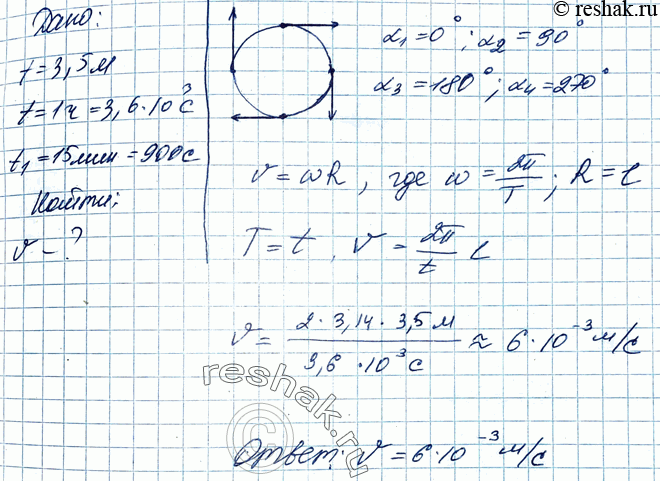 © reshak.ru
Дано:
t = 3,5 м
t = 1ч = 3,6·10³ с
t₁ = 15 мин = 900 с
Найти:
v - ?
α₁ = 0°; α₂ = 90°
α₃ = 180°; α₄ = 270°
v = ωR, где ω = 2π/T; R = l
T = t, v = 2π/t l
v = 2·3,14·3,5 м / 3,6·10³ с ≈ 6·10⁻³ м/с
reshak.ru
©
Ответ: v = 6·10⁻³ м/с